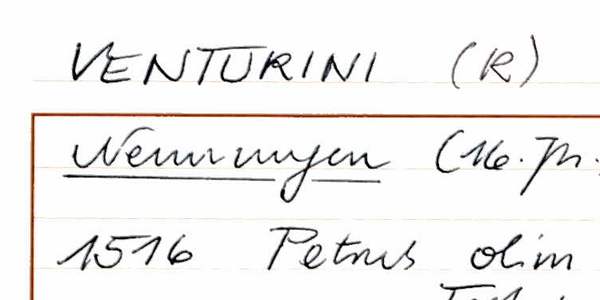 VENTURINI (R)
Nennungen (16. Jh.
1516 Petrus olim